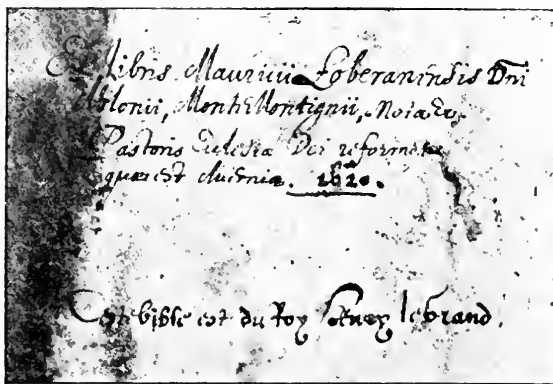 Ex libris Mauricii Loberaninsis Dni
Ablonii, Monti Montignii,
Pastoris Eclesiæ Dei reformatæ
quæ est 1620.
Ceste bible est du Roy Henry le grand.